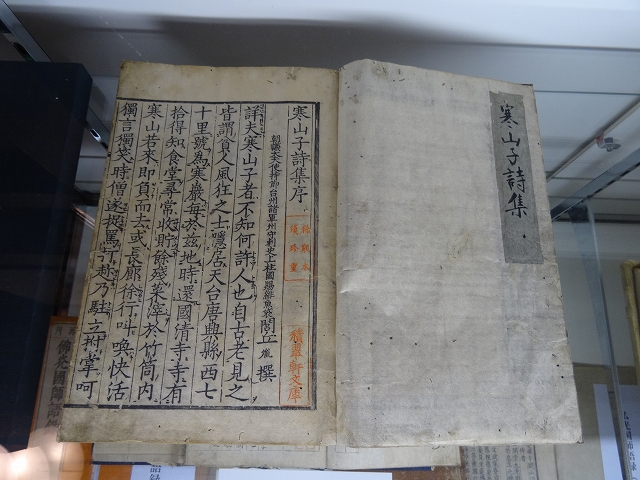 寒山子詩集
寒山子詩集序
朝議大夫使持節台州諸軍州守刺史上柱國賜緋魚袋閭丘胤撰
稀覯本
須珍重
積翠軒文庫
詳夫寒山子者不知何許人也自古老見之
皆謂貧人風狂之士隱居天台唐興縣西七
十里號為寒巖每於茲地時還國清寺寺有
拾得知食堂尋常收貯餘殘菜滓於竹筒内
寒山若來即負而去或長廊徐行叫喚快活
獨言獨笑時僧遂捉罵打趁乃駐立拊掌呵